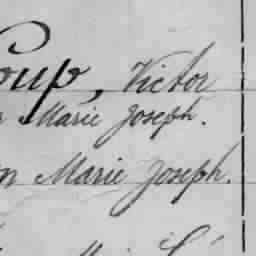 oup, Victor
Marie Joseph.
Marie Joseph.